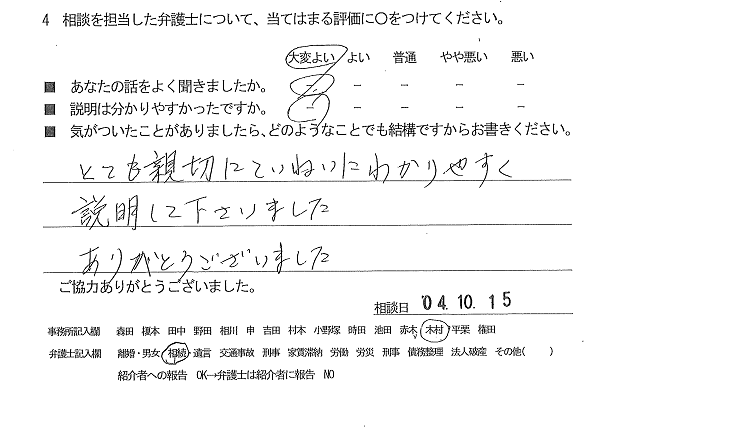 4 相談を担当した弁護士について、当てはまる評価に〇をつけてください。
大変よい よい 普通 やや悪い 悪い
■ あなたの話をよく聞きましたか。 － － － － －
■ 説明は分かりやすかったですか。 － － － － －
■ 気がついたことがありましたら、どのようなことでも結構ですからお書きください。
とても親切にていねいにわかりやすく
説明して下さいました
ありがとうございました
ご協力ありがとうございました。
相談日 '04.10.15
事務所記入欄 森田 榎本 田中 野田 相川 申 吉田 村本 小野塚 時田 池田 赤木 木村 平栗 権田
弁護士記入欄 離婚・男女 相続・遺言 交通事故 刑事 家賃滞納 労働 労災 刑事 債務整理 法人破産 その他( )
紹介者への報告 OK→弁護士は紹介者に報告 NO